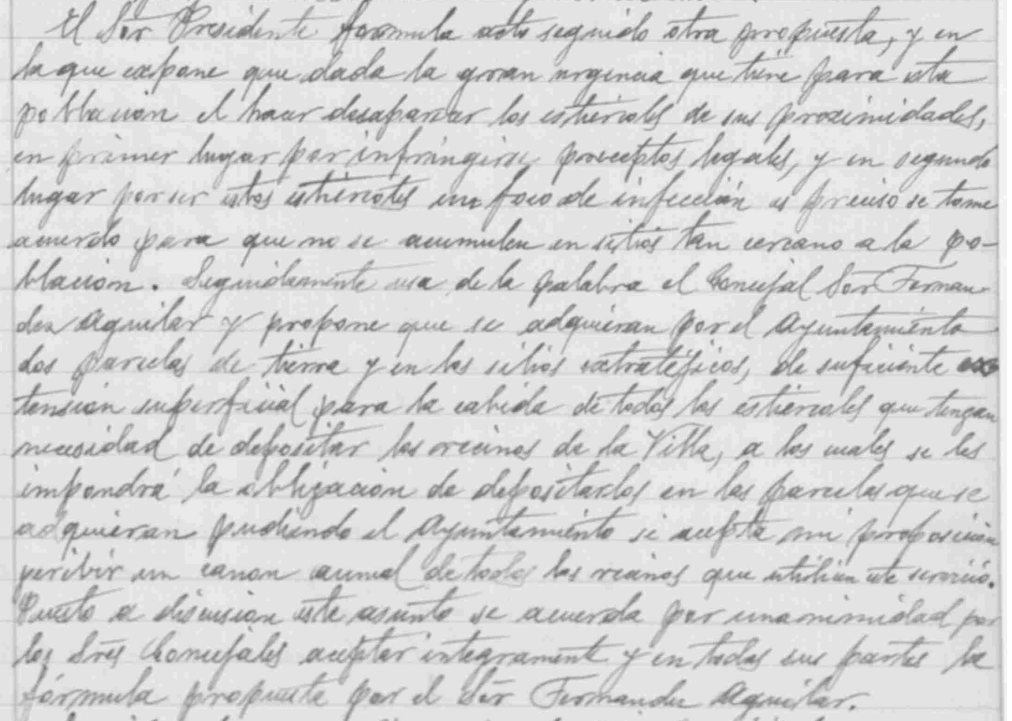 El Sor Presidente formula acto seguido otra propuesta, y en
la que expone que dada la gran urgencia que tiene para esta
población el hacer desaparecer los estiercoles de sus proximidades,
en primer lugar por infringirse preceptos legales, y en segundo
lugar por ser estos estiercoles un foco de infección es preciso se tome
acuerdo para que no se acumulen en sitios tan cercano a la po-
blación. Seguidamente usa de la palabra el Concejal Sor Fernan-
dez Aguilar y propone que se adquieran por el Ayuntamiento
dos parcelas de tierra y en los sitios extratégicos, de suficiente ex
tensión superficial para la cabida de todos los estiercoles que tengan
necesidad de depositar los vecinos de la Villa, a los cuales se les
impondrá la obligación de depositarlos en las parcelas que se
adquieran pudiendo el Ayuntamiento si acepta mi proposición
percibir un canon anual de todos los vecinos que utilicen este servicio.
Puesto a discusion este asunto se acuerda por unanimidad por
los Sres Concejales aceptar integramente y en todas sus partes la
fórmula propuesta por el Sor Fernandez Aguilar.